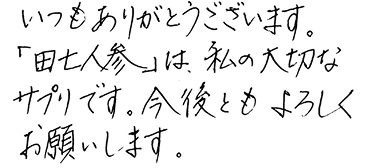 いつもありがとうございます。
「田七人参」は、私の大切な
サプリです。今後ともよろしく
お願いします。